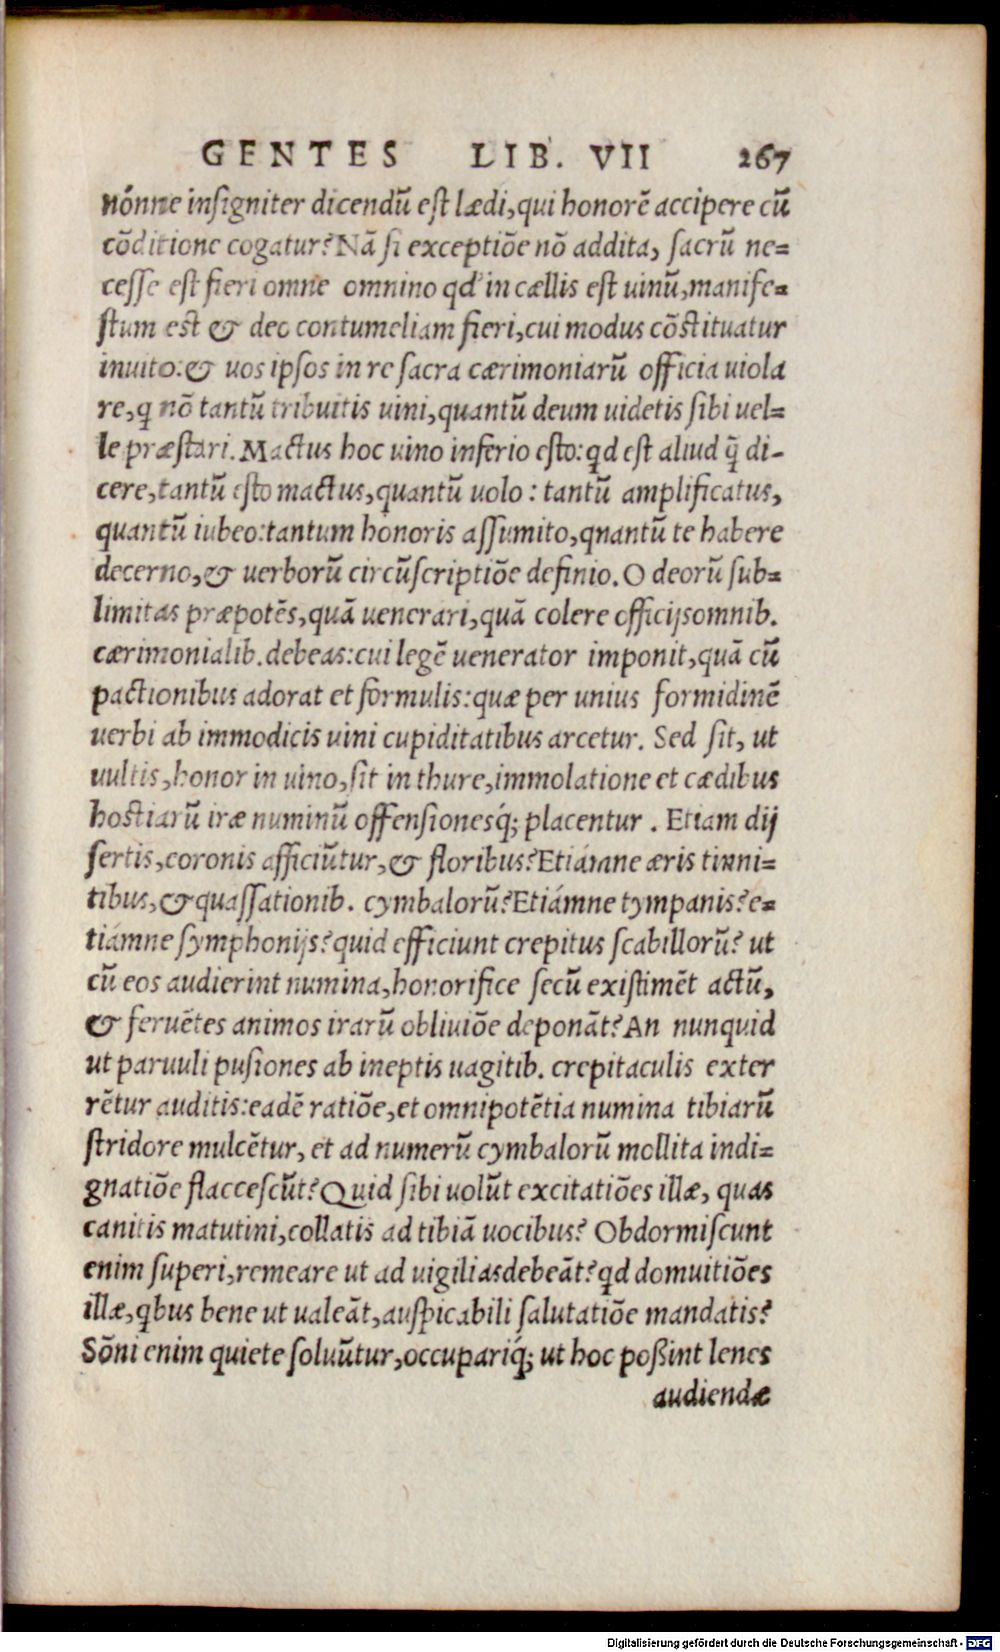 GENTES LIB. VII 267
nónne insigniter dicendū est lædi, qui honorē accipere cū
cōditione cogatur? Nā si exceptiōe nō addita, sacrū ne=
cesse est fieri omne omnino qd' in cællis est uinū, manife=
stum est & deo contumeliam fieri, cui modus cōstituatur
inuito: & uos ipsos in re sacra cærimoniarū officia uiola
re, q nō tantū tribuitis uini, quantū deum uidetis sibi uel=
le præstari. Mactus hoc uino inferio esto: qd est aliud q̄ di-
cere, tantū esto mactus, quantū uolo: tantū amplificatus,
quantū iubeo: tantum honoris assumito, qnantū te habere
decerno, & uerborū circūscriptiōe definio. O deorū sub=
limitas præpotēs, quā uenerari, quā colere officijsomnib.
cærimonialib. debeas: cui legē uenerator imponit, quā cū
pactionibus adorat et formulis: quæ per unius formidinē
uerbi ab immodicis uini cupiditatibus arcetur. Sed sit, ut
uultis, honor in uino, sit in thure, immolatione et cædibus
hostiarū iræ numinū offensionesq́; placentur. Etiam dij
sertis, coronis afficiūtur, & floribus? Etiámne æris tinni=
tibus, & quassationib. cymbalorū? Etiámne tympanis? e=
tiámne symphonijs? quid efficiunt crepitus scabillorū? ut
cū eos audierint numina, honorifice secū existimēt actū,
& feruētes animos irarū obliuiōe deponāt? An nunquid
ut paruuli pusiones ab ineptis uagitib. crepitaculis exter
rētur auditis: eadē ratiōe, et omnipotētia numina tibiarū
stridore mulcētur, et ad numerū cymbalorū mollita indi=
gnatiōe flaccescūt? Quid sibi uolūt excitatiōes illæ, quas
canitis matutini, collatis ad tibiā uocibus? Obdormiscunt
enim superi, remeare ut ad uigiliasdebeāt? qd domuitiōes
illæ, qbus bene ut ualeāt, auspicabili salutatiōe mandatis?
Sōni enim quiete soluūtur, occupariq́; ut hoc poßint lenes
audiendæ
Digitalisierung gefördert durch die Deutsche Forschungsgemeinschaft - DFG